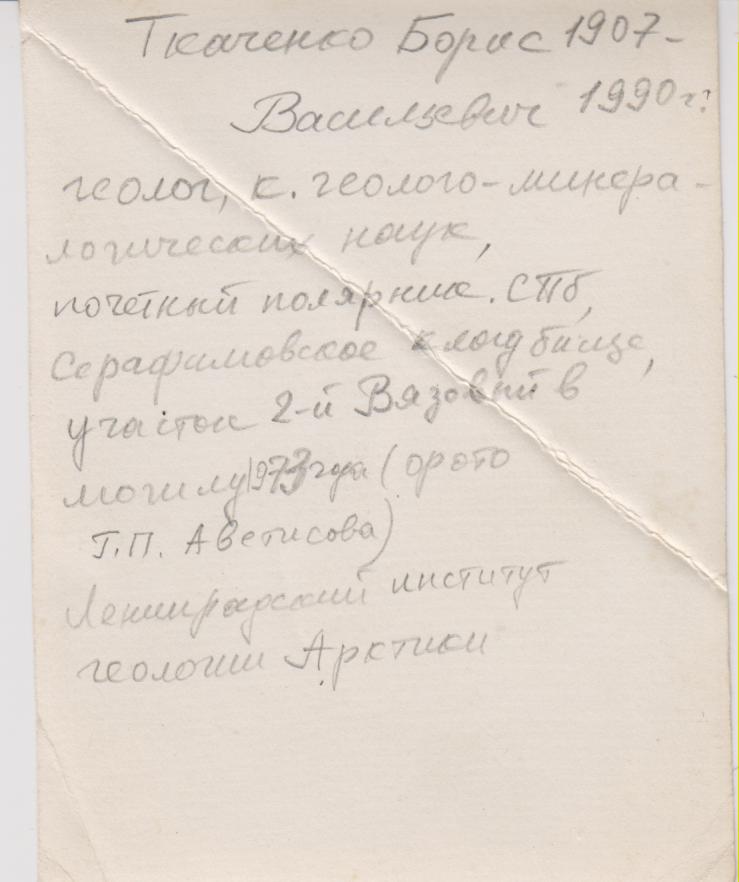 Ткаченко Борис 1907-
Васильевич 1990 г.
геолог, к. геолого-минера-
логических наук,
почетный полярник. СПб,
Серафимовское кладбище,
участок 2-й Вязовый в
могилу 1973 года (фото
Г.П. Аветисова)
Ленинградский институт
геологии Арктики